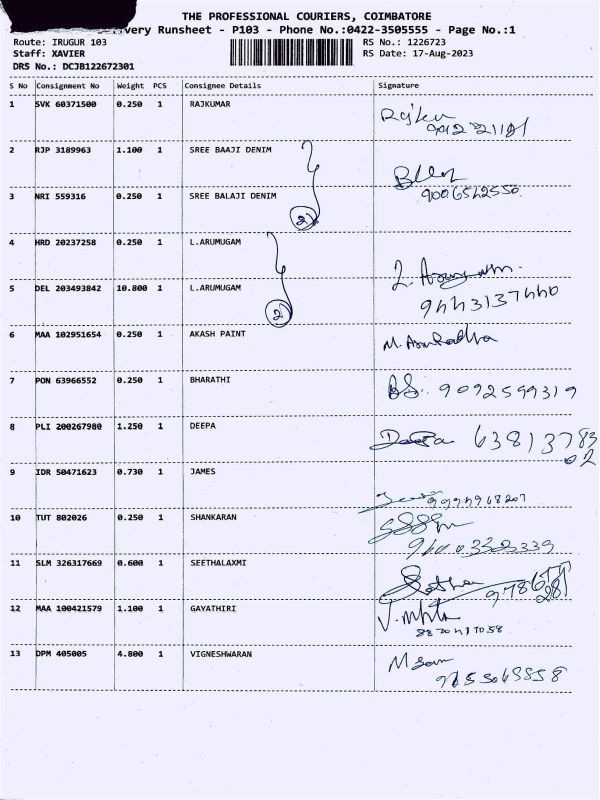 THE PROFESSIONAL COURIERS, COIMBATORE
very Runsheet - P103 - Phone No.:0422-3505555 - Page No.:1
Route: IRUGUR 103 RS No.: 1226723
Staff: XAVIER RS Date: 17-Aug-2023
DRS No.: DCJB122672301
S No Consignment No Weight PCS Consignee Details Signature
1 SVK 60371500 0.250 1 RAJKUMAR
2 RJP 3189963 1.100 1 SREE BAAJI DENIM
9006542550
3 NRI 559316 0.250 1 SREE BALAJI DENIM
2
4 HRD 20237258 0.250 1 L.ARUMUGAM
5 DEL 203493842 10.800 1 L.ARUMUGAM
9443137440
2
6 MAA 102951654 0.250 1 AKASH PAINT
M. Anuradha
7 PON 63966552 0.250 1 BHARATHI
9092599319
8 PLI 200267980 1.250 1 DEEPA
Deepa 63813783
02
9 IDR 50471623 0.730 1 JAMES
10 TUT 802026 0.250 1 SHANKARAN
11 SLM 326317669 0.600 1 SEETHALAXMI
12 MAA 100421579 1.100 1 GAYATHIRI
13 DPM 405005 4.800 1 VIGNESHWARAN